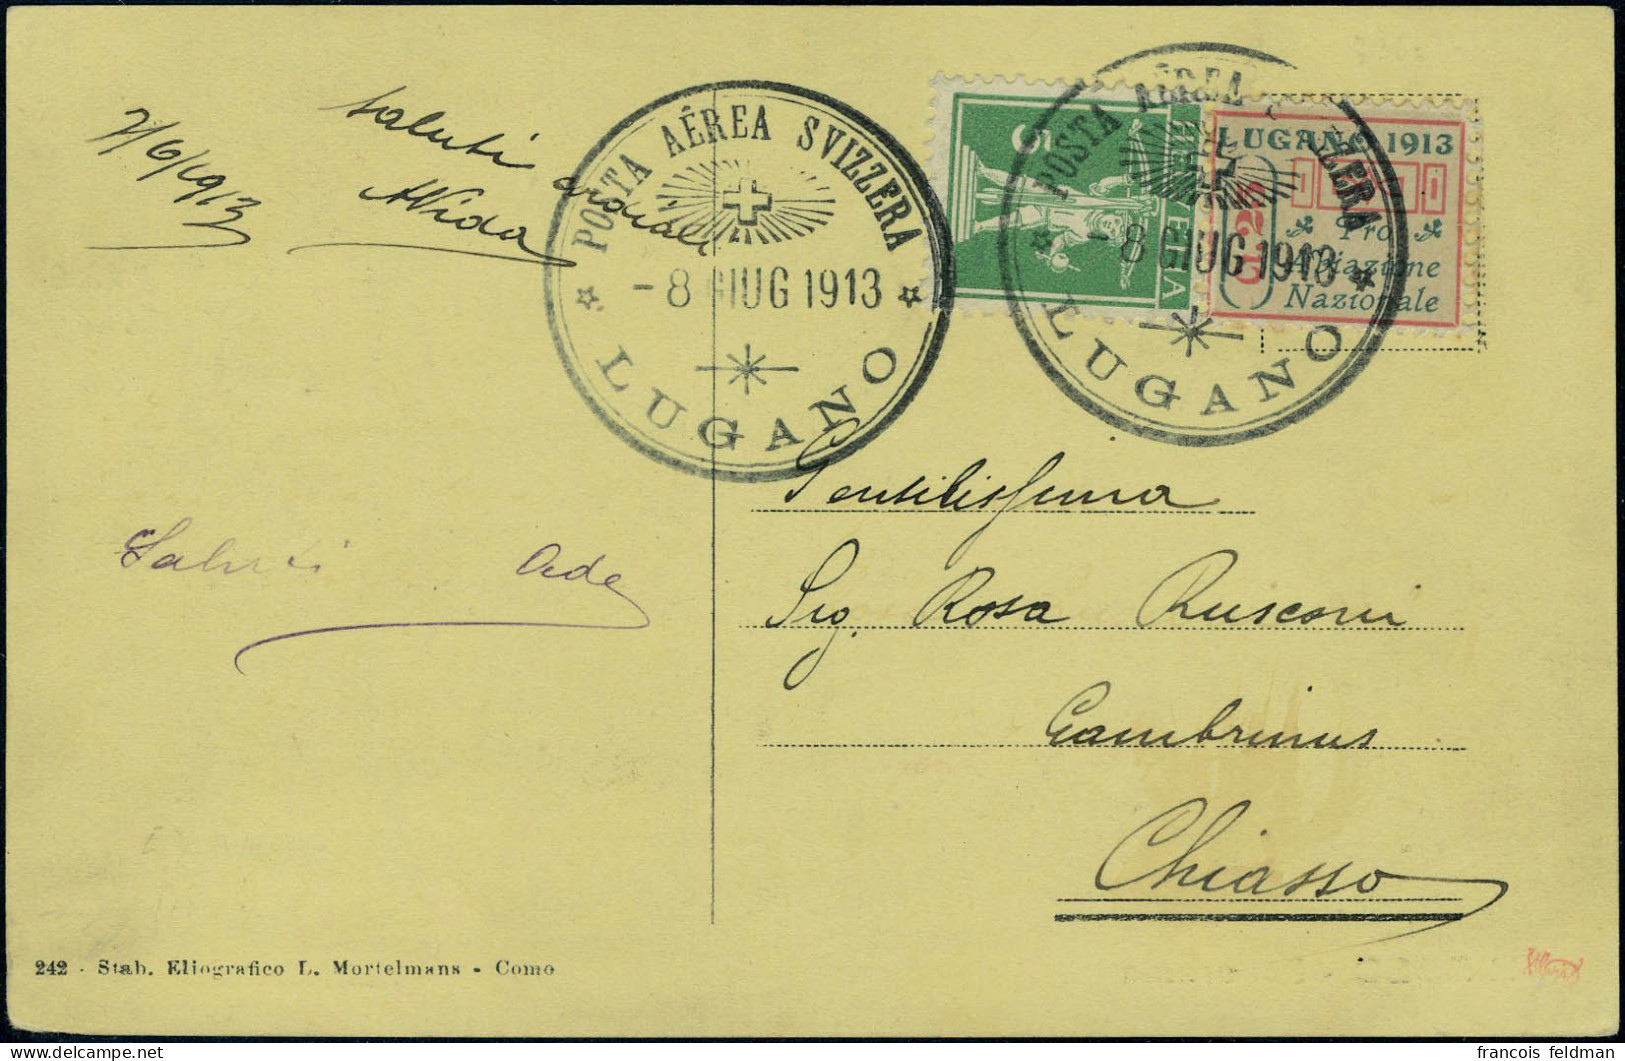 7/6/1913
Saluti cordiali
POSTA AÉREA SVIZZERA
- 8 GIUG 1913
LUGANO
5
HELVETIA
POSTA AÉREA SVIZZERA
- 8 GIUG 1913
LUGANO
LUGANO 1913
Ct. 25
Pro
Aviazione
Nazionale
Gentilissima
Sig. Rosa Rusconi
Gambrinus
Chiasso
Saluti Ada
242 - Stab. Eliografico L. Mortelmans - Como
francois feldman